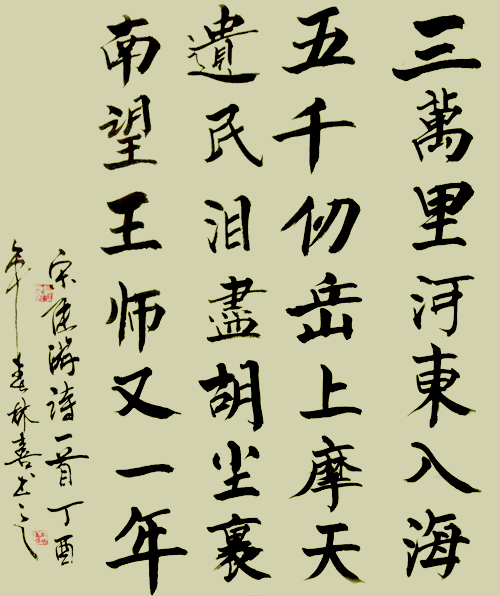 三萬里河東入海
五千仞岳上摩天
遺民泪盡胡尘裏
南望王师又一年
宋陆游诗一首丁酉
年春林喜书之